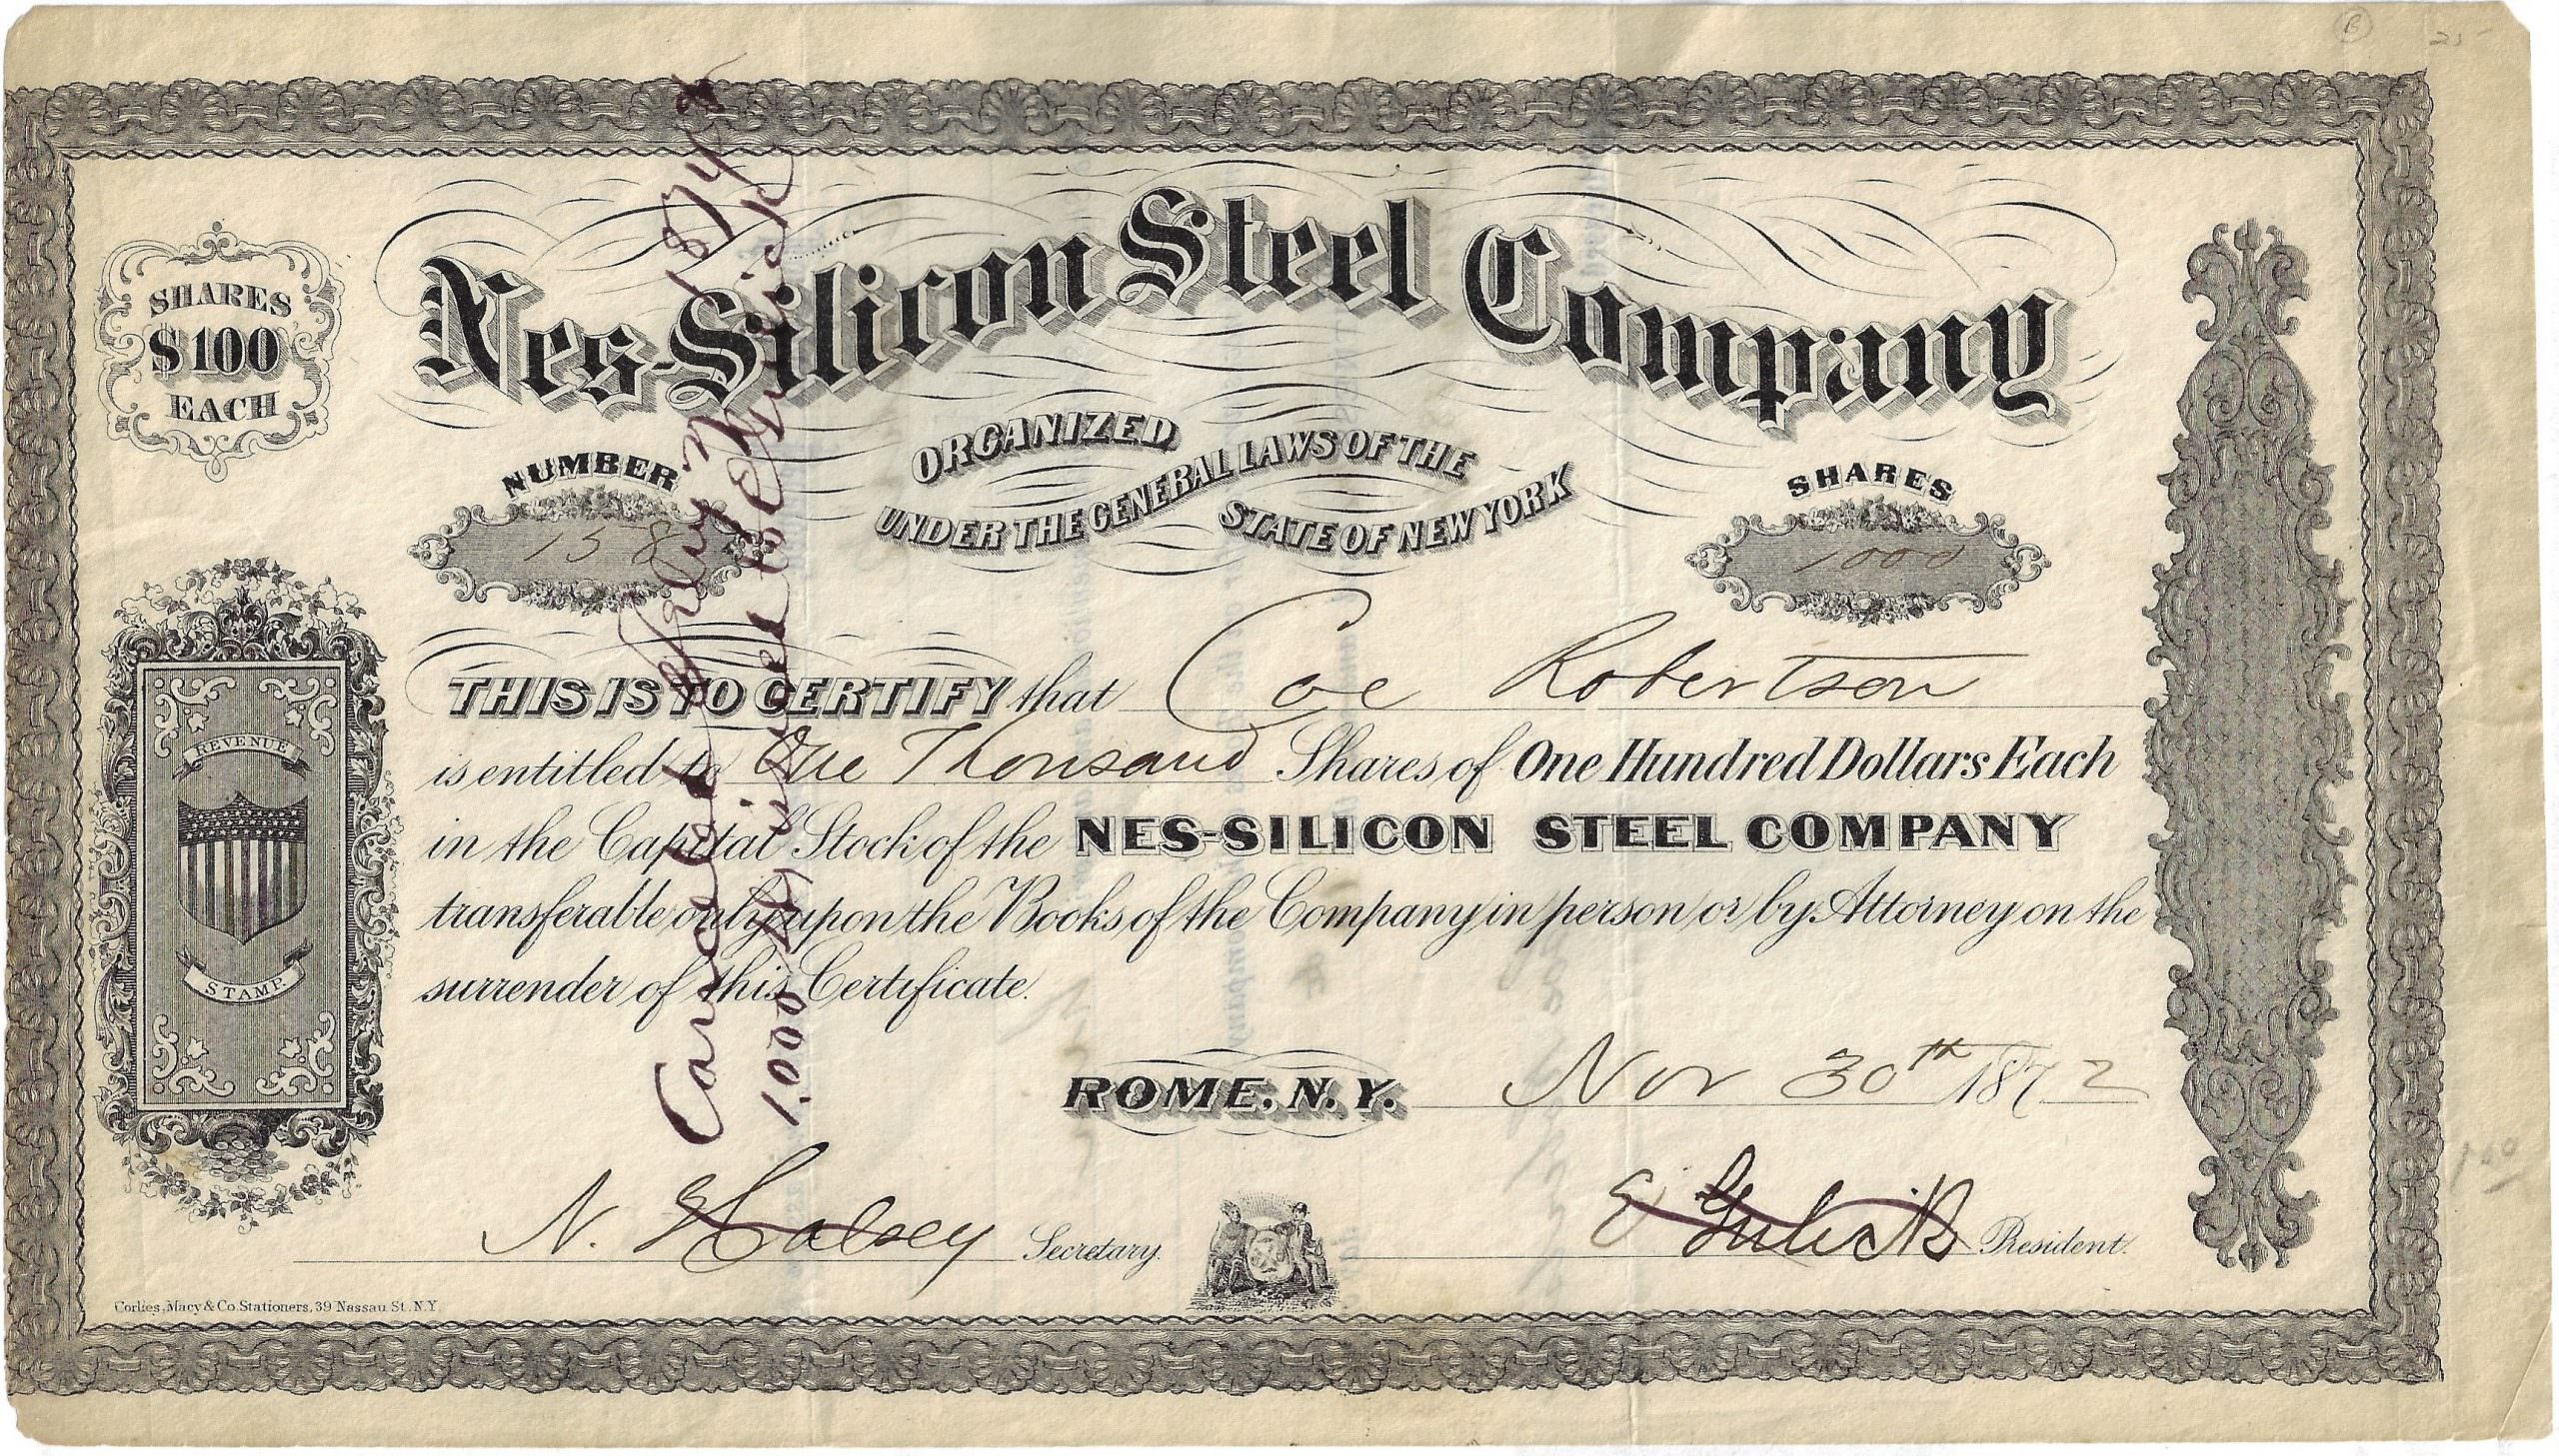 SHARES
$100
EACH
Nes-Silicon Steel Company
ORGANIZED
UNDER THE GENERAL LAWS OF THE
STATE OF NEW YORK
NUMBER
158
SHARES
1000
THIS IS TO CERTIFY that Coe Robertson
is entitled to One Thousand Shares of One Hundred Dollars Each
in the Capital Stock of the NES-SILICON STEEL COMPANY
transferable only upon the Books of the Company in person or by Attorney on the
surrender of this Certificate.
REVENUE
STAMP.
ROME. N. Y. Nov 30th 1872
N. Halsey Secretary.
E Gulick President.
Corlies, Macy & Co. Stationers, 39 Nassau St. N.Y.
Canceled
1.000